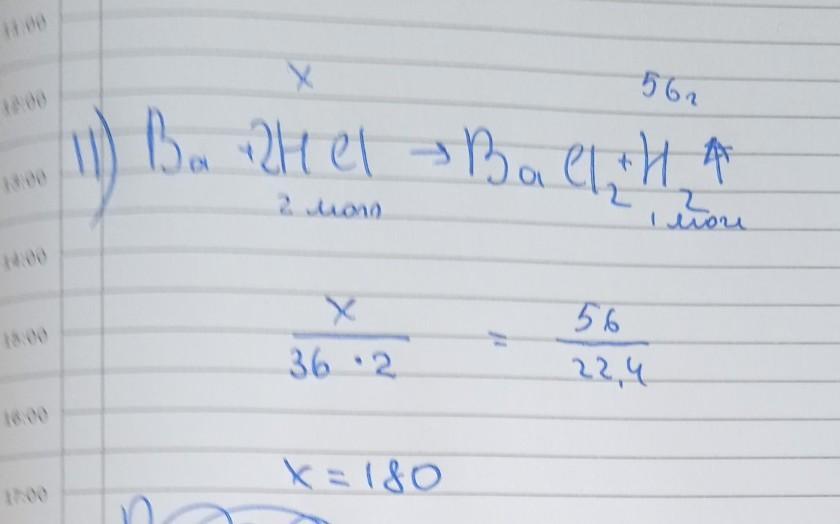 11:00
12:00
13:00
14:00
15:00
16:00
17:00
x 56г
11) Ba + 2HCl → BaCl₂ + H₂↑
2 моль 1 моль
x/36·2 = 56/22,4
x = 180